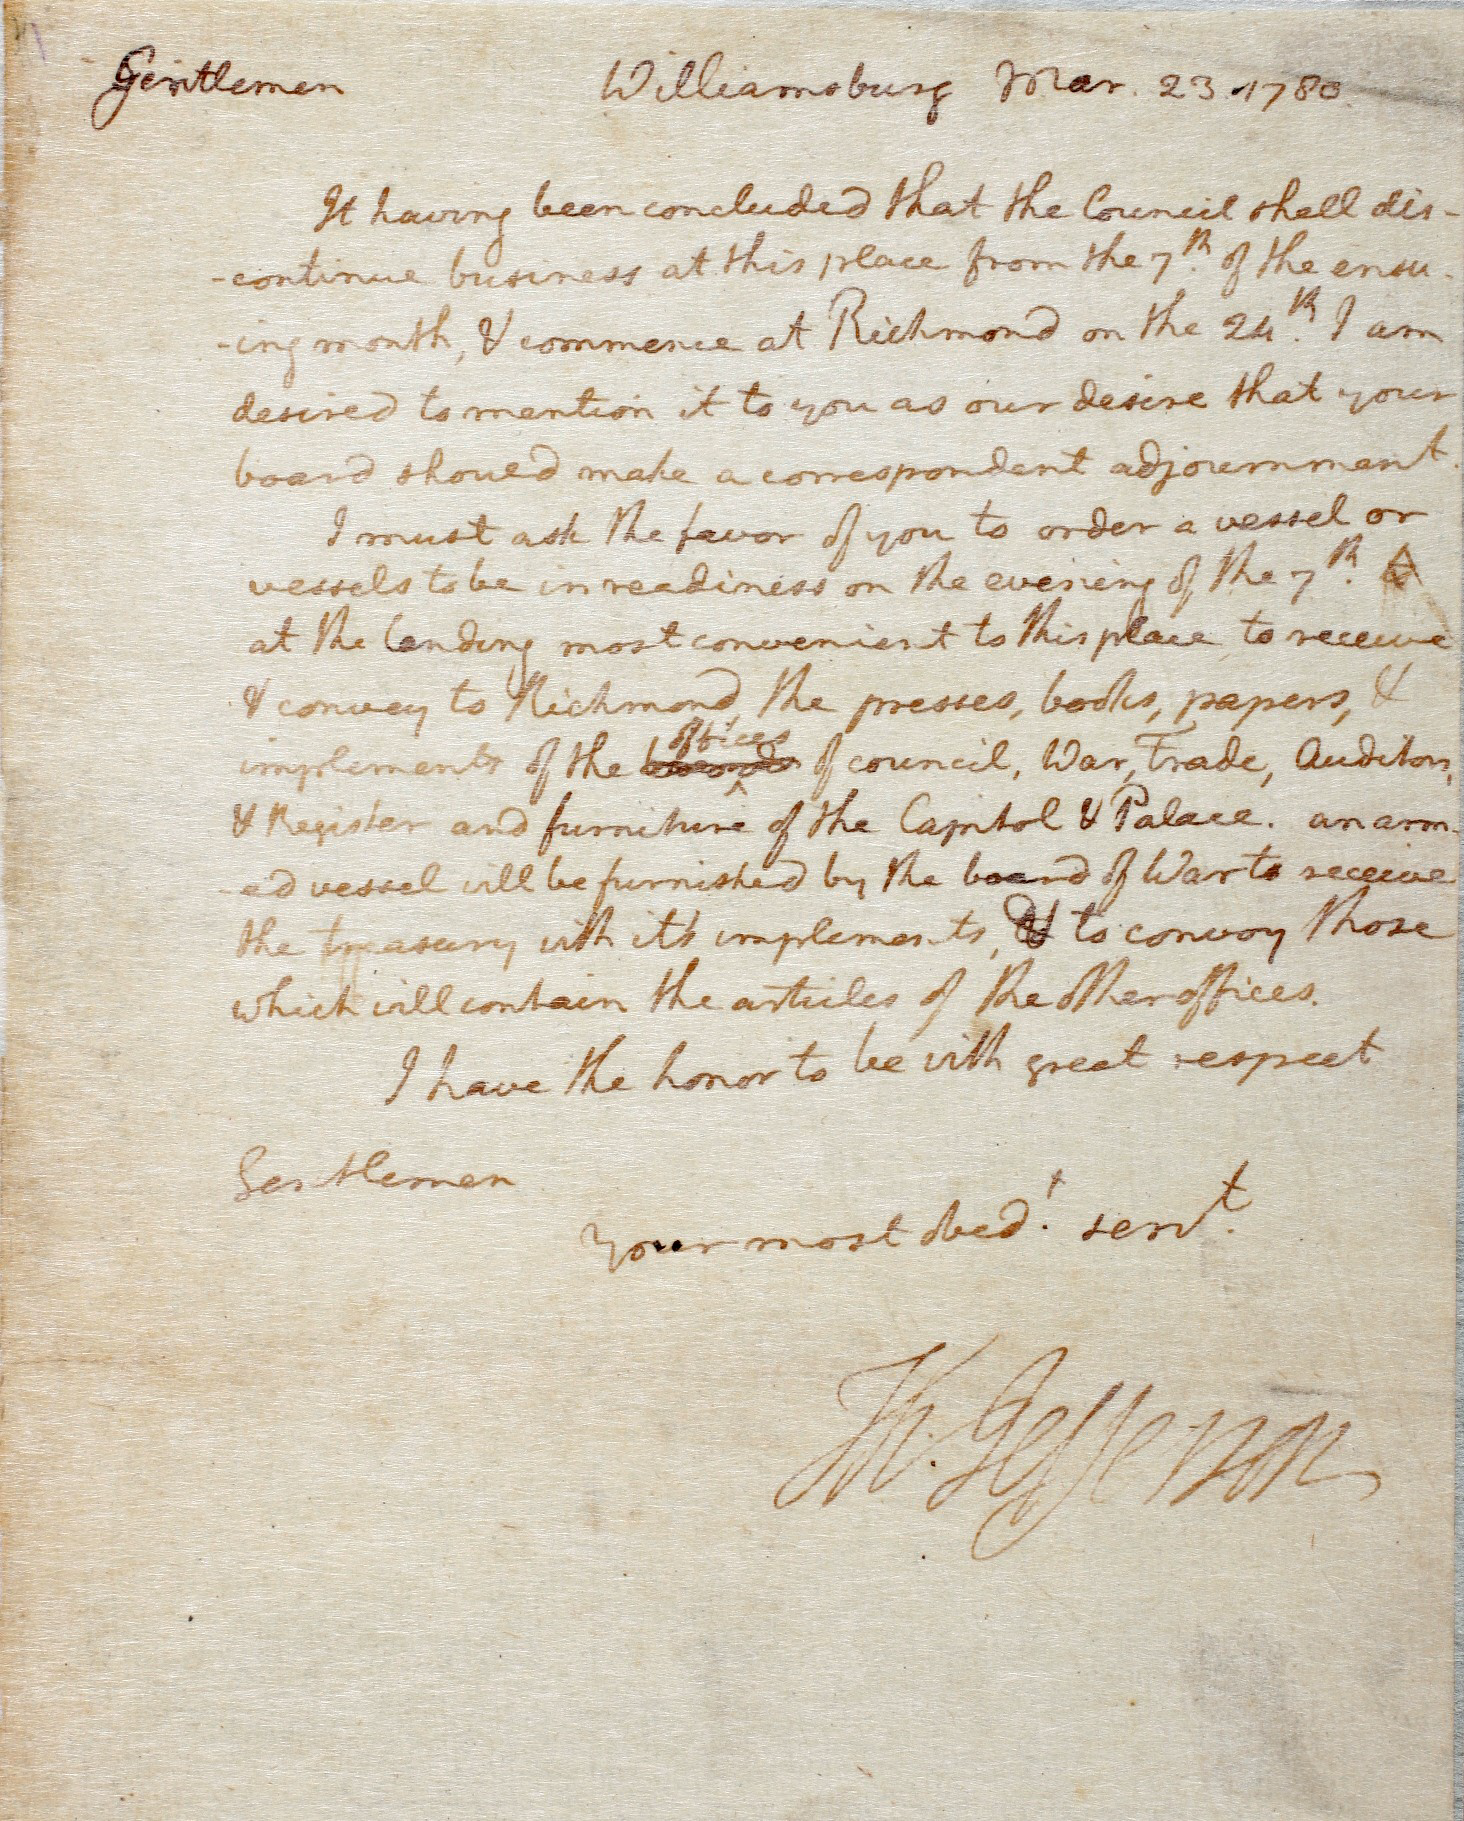 Gentlemen Williamsburg Mar. 23. 1780.
It having been concluded that the Council shall dis-
-continue business at this place from the 7th. of the ensu-
-ing month, & commence at Richmond on the 24th. I am
desired to mention it to you as our desire that your
board should make a correspondent adjournment.
I must ask the favor of you to order a vessel or
vessels to be in readiness on the evening of the 7th.
at the landing most convenient to this place to receive
& convey to Richmond the presses, books, papers, &
offices
implements of the boards of council, War, Trade, Auditors,
& Register and furniture of the Capitol & Palace. an arm-
-ed vessel will be furnished by the board of War to receive
the treasury with it's implements, & to convoy those
which will contain the articles of the other offices.
I have the honor to be with great respect
Gentlemen
Your most obedt. servt.
Th. Jefferson